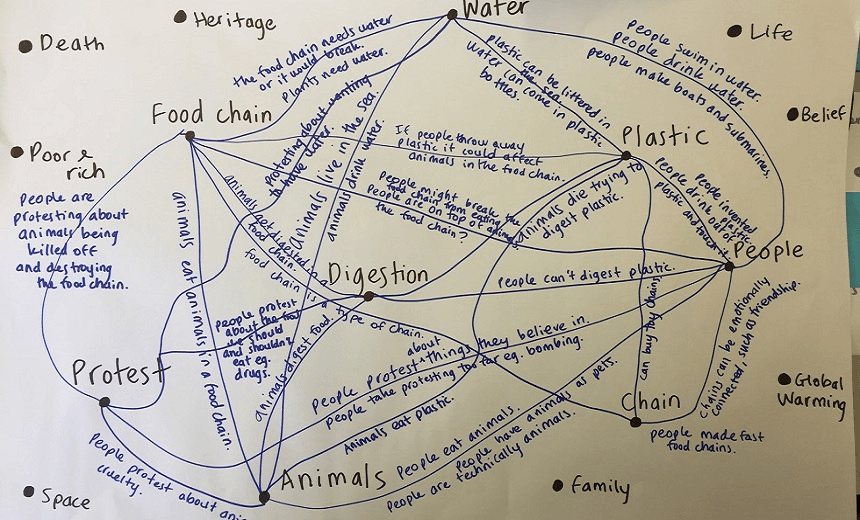 Water
Heritage
Life
Death
the food chain needs water
or it would break.
Plants need water.
People swim in water.
People drink water.
people make boats and submarines.
plastic can be littered in
the sea.
Water can come in plastic
bottles.
Food chain
Belief
Plastic
Poor & rich
protesting about wanting
to have water.
Animals live in the sea.
animals drink water.
If people throw away
plastic it could affect
animals in the food chain.
People might break the
food chain from eating
People are on top of
the food chain?
animals die trying to
digest plastic.
People invented plastic.
People drink out of
plastic and touch it.
People are
protesting about
animals being
killed off
and destroying
the food chain.
animals eat animals in a food chain.
animals get digested in a
food chain.
food chain is a type of chain.
People
Digestion
People can't digest plastic.
people protest
about the food
we should
and shouldn't
eat eg.
drugs.
animals digest food.
can buy toy chains
Chains can be emotionally
connected, such as friendship.
Protest
about
People protest things they believe in.
people take protesting too far eg. bombing.
Animals eat plastic.
Chain
Global
Warming
people made fast
food chains.
People eat animals.
people have animals as pets.
People are technically animals.
People protest about
cruelty.
Animals
Family
Space